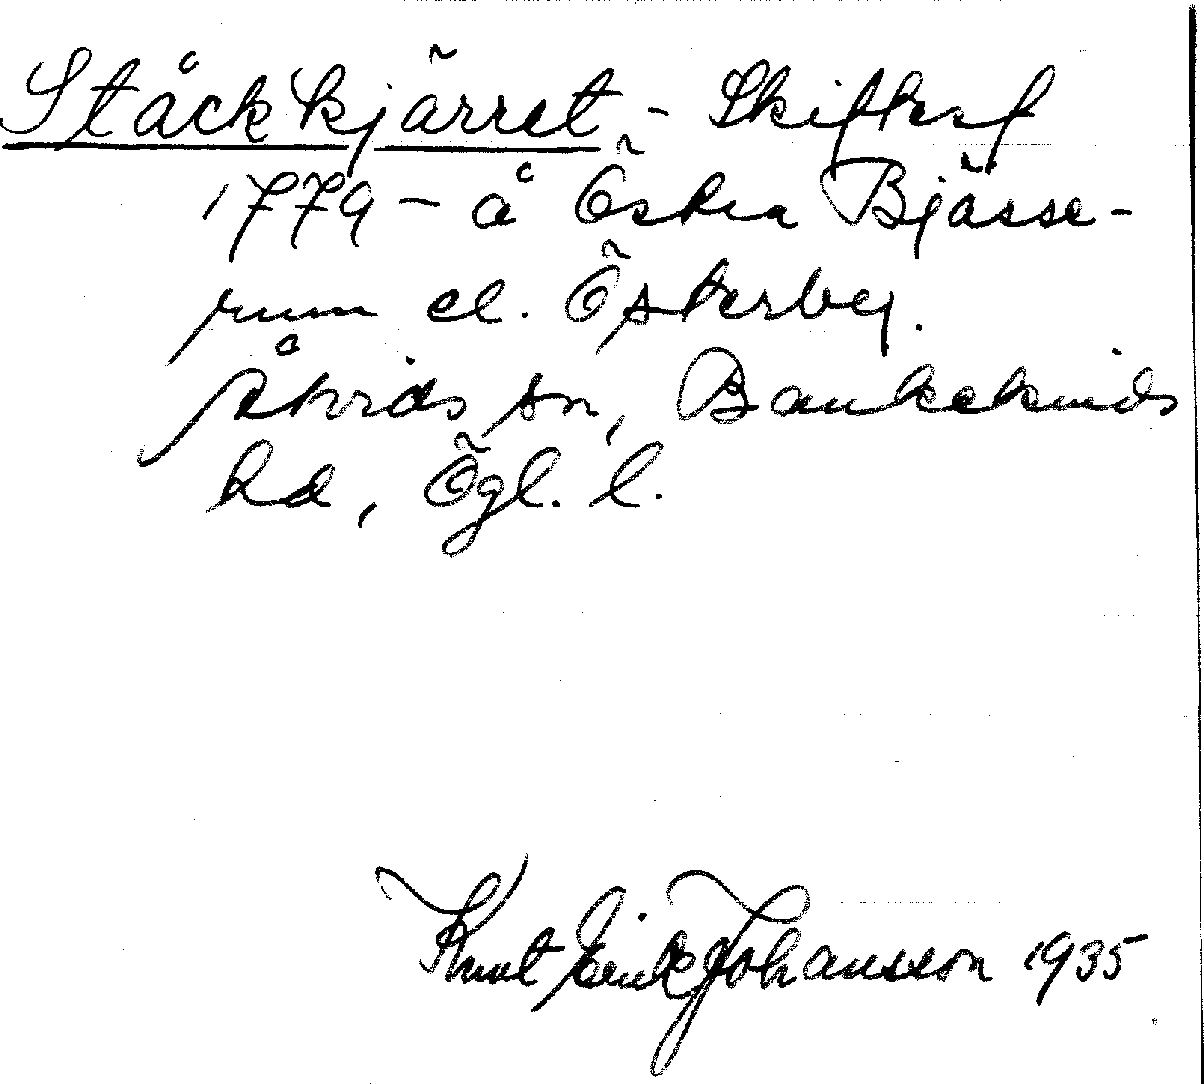 Ståckkjärret - Skifteskf
1779 - å Östra Bjässe-
rum el. Österby.
Åtvids sn, Bankekinds
hd, Ögl. l.
Knut Erik Johansson 1935